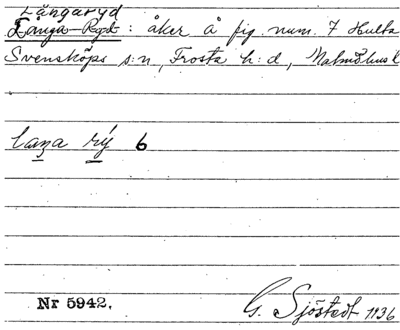 Långaryd
Långa-Ryd: åker å fig. num. 7 Hulta
Svensköps s:n, Frosta h:d, Malmöhus l
laŋa rý 6
Nr 5942.
G. Sjöstedt 1936